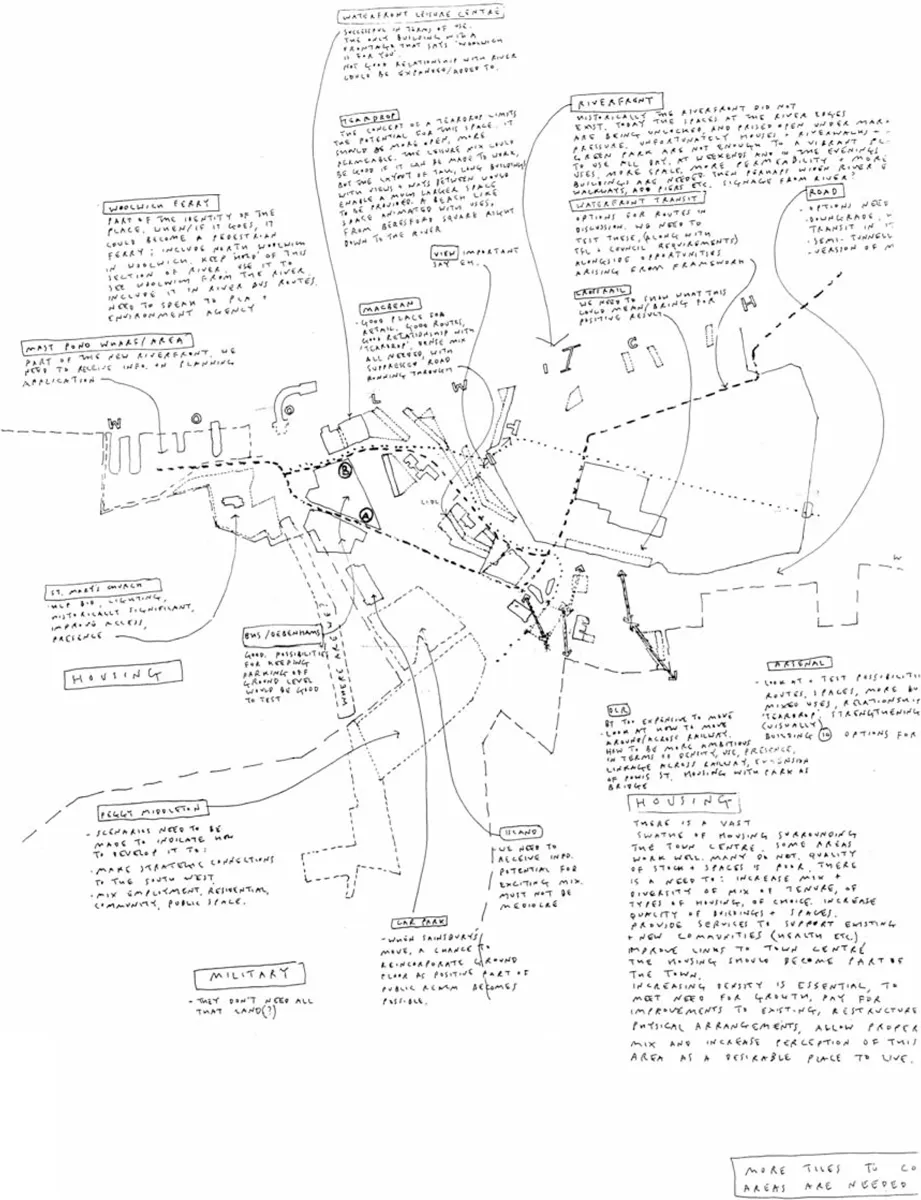 WATERFRONT LEISURE CENTRE
SUCCESSFUL IN TERMS OF USE.
THE ONLY BUILDING WITH A
FRONTAGE THAT SAYS 'WOOLWICH
IS FOR YOU'.
NOT GOOD RELATIONSHIP WITH RIVER
COULD BE EXPANDED/ADDED TO.
TEARDROP
THE CONCEPT OF A TEARDROP LIMITS
THE POTENTIAL FOR THIS SPACE. IT
SHOULD BE MORE OPEN, MORE
PERMEABLE. THE LEISURE MIX COULD
BE GOOD IF IT CAN BE MADE TO WORK,
BUT THE LAYOUT OF TALL, LONG BUILDINGS
WITH VIEWS + WAYS BETWEEN WOULD
ENABLE A MUCH LARGER SPACE
TO BE PROVIDED. A BEACH LIKE
SPACE ANIMATED WITH USES,
FROM BERESFORD SQUARE RIGHT
DOWN TO THE RIVER
RIVERFRONT
HISTORICALLY THE RIVERFRONT DID NOT
EXIST. TODAY THE SPACES AT THE RIVER EDGES
ARE BEING UNLOCKED AND PRISED OPEN UNDER MAR
PRESSURE. UNFORTUNATELY HOUSES + RIVERWALKS +
GREEN PARK ARE NOT ENOUGH TO A VIBRANT PL
TO USE ALL DAY, AT WEEKENDS AND IN THE EVENINGS
USES, MORE SPACE, MORE PERMEABILITY + MORE
BUILDINGS ARE NEEDED. THEN PERHAPS WIDEN RIVER E
WALKWAYS, ADD PIERS ETC. SIGNAGE FROM RIVER?
WATERFRONT TRANSIT
OPTIONS FOR ROUTES IN
DISCUSSION. WE NEED TO
TEST THESE, (ALONG WITH
TFL + COUNCIL REQUIREMENTS)
ALONGSIDE OPPORTUNITIES
ARISING FROM FRAMEWORK
ROAD
- OPTIONS NEED
- DOWNGRADE,
TRANSIT IN IT
- SEMI-TUNNEL
- VERSION OF M
WOOLWICH FERRY
PART OF THE IDENTITY OF THE
PLACE. WHEN/IF IT GOES, IT
COULD BECOME A PEDESTRIAN
FERRY; INCLUDE NORTH WOOLWICH
IN WOOLWICH. KEEP 'HOLD' OF THIS
SECTION OF RIVER. USE IT TO
SEE WOOLWICH FROM THE RIVER.
INCLUDE IT IN RIVER BUS ROUTES.
NEED TO SPEAK TO PLA +
ENVIRONMENT AGENCY
VIEW IMPORTANT
SAY EH.
MACBEAN
- GOOD PLACE FOR
RETAIL. GOOD ROUTES,
GOOD RELATIONSHIP WITH
'TEARDROP', DENSE MIX
ALL NEEDED, WITH
SUPPRESSED ROAD
RUNNING THROUGH
CROSSRAIL
WE NEED TO SHOW WHAT THIS
COULD MEAN/BRING FOR
POSITIVE RESULT.
MAST POND WHARF/AREA
PART OF THE NEW RIVERFRONT. WE
NEED TO RECEIVE INFO. ON PLANNING
APPLICATION
W O O L W I C H
B
A
ST. MARY'S CHURCH
- HLF BID, LIGHTING,
HISTORICALLY SIGNIFICANT,
IMPROVE ACCESS,
PRESENCE
HOUSING
BUS/DEBENHAMS
GOOD POSSIBILITIES
FOR KEEPING
PARKING OFF
GROUND LEVEL
WOULD BE GOOD
TO TEST
WHERE ARE WE?
ARSENAL
- LOOK AT + TEST POSSIBILITI
ROUTES, SPACES, MORE BU
MIXED USES, RELATIONSHIP
'TEARDROP', STRENGTHENING
(VISUALLY)
BUILDING 10 OPTIONS FOR
DLR
BE TOO EXPENSIVE TO MOVE
- LOOK AT HOW TO MOVE
AROUND/ACROSS RAILWAY.
HOW TO BE MORE AMBITIOUS
IN TERMS OF DENSITY, USE, PRESENCE,
LINKAGE ACROSS RAILWAY, EXTENSION
OF POWIS ST. HOUSING WITH PARK AS
BRIDGE
PEGGY MIDDLETON
- SCENARIOS NEED TO BE
MADE TO INDICATE HOW
TO DEVELOP IT TO:
- MAKE STRATEGIC CONNECTIONS
TO THE SOUTH WEST
- MIX EMPLOYMENT, RESIDENTIAL,
COMMUNITY, PUBLIC SPACE.
ISLAND
- WE NEED TO
RECEIVE INFO.
POTENTIAL FOR
EXCITING MIX.
MUST NOT BE
MEDIOCRE
CAR PARK
- WHEN SAINSBURYS
MOVE, A CHANCE TO
REINCORPORATE GROUND
FLOOR AS POSITIVE PART OF
PUBLIC REALM BECOMES
POSSIBLE.
MILITARY
- THEY DON'T NEED ALL
THAT LAND(?)
HOUSING
THERE IS A VAST
SWATHE OF HOUSING SURROUNDING
THE TOWN CENTRE. SOME AREAS
WORK WELL. MANY DO NOT. QUALITY
OF STOCK + SPACES IS POOR. THERE
IS A NEED TO: INCREASE MIX +
DIVERSITY OF MIX OF TENURE, OF
TYPES OF HOUSING, OF CHOICE. INCREASE
QUALITY OF BUILDINGS + SPACES.
PROVIDE SERVICES TO SUPPORT EXISTING
+ NEW COMMUNITIES (HEALTH ETC)
IMPROVE LINKS TO TOWN CENTRE
THE HOUSING SHOULD BECOME PART OF
THE TOWN.
INCREASING DENSITY IS ESSENTIAL, TO
MEET NEED FOR GROWTH, PAY FOR
IMPROVEMENTS TO EXISTING, RESTRUCTURE
PHYSICAL ARRANGEMENTS, ALLOW PROPER
MIX AND INCREASE PERCEPTION OF THIS
AREA AS A DESIRABLE PLACE TO LIVE.
MORE TILES TO CO
AREAS ARE NEEDED